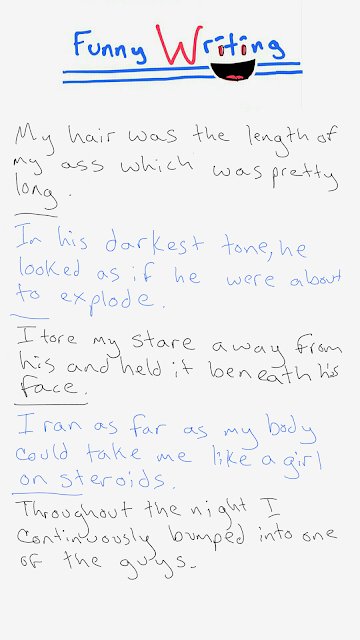 Funny Writing
My hair was the length of
my ass which was pretty
long.
In his darkest tone, he
looked as if he were about
to explode.
I tore my stare away from
his and held it beneath his
face.
I ran as far as my body
could take me like a girl
on steroids.
Throughout the night I
continuously bumped into one
of the guys.